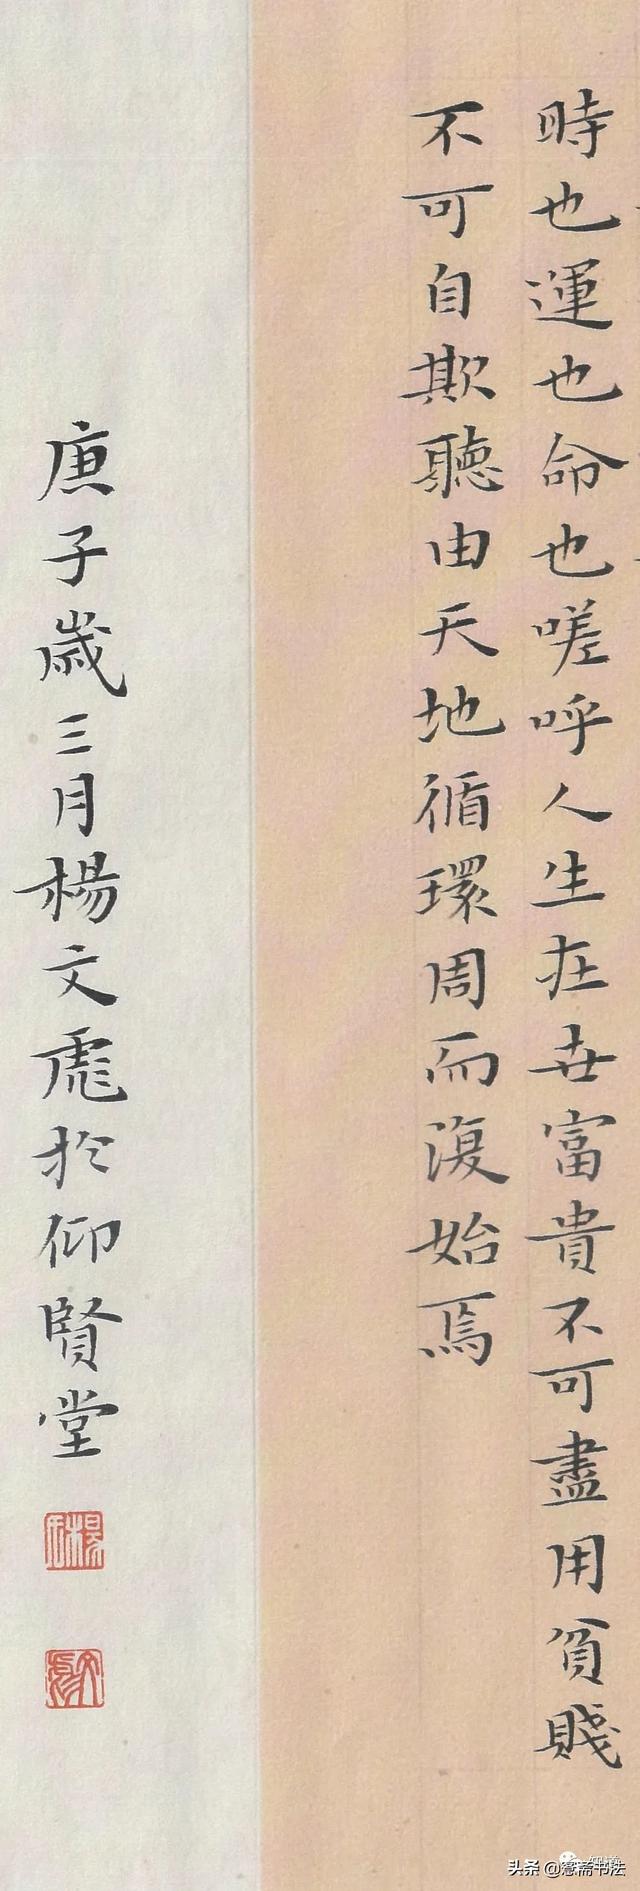 時也運也命也嗟呼人生在世富貴不可盡用貧賤
不可自欺聽由天地循環周而復始焉
庚子歲三月楊文彪於仰賢堂
头条 @愙斋书法